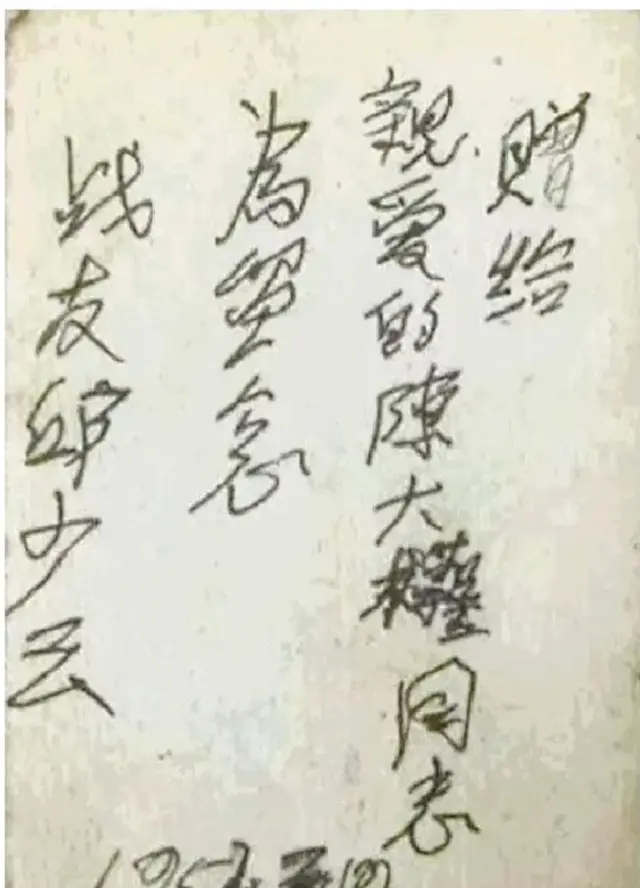 赠给
親爱的陳大權同志
為留念
战友邱少云